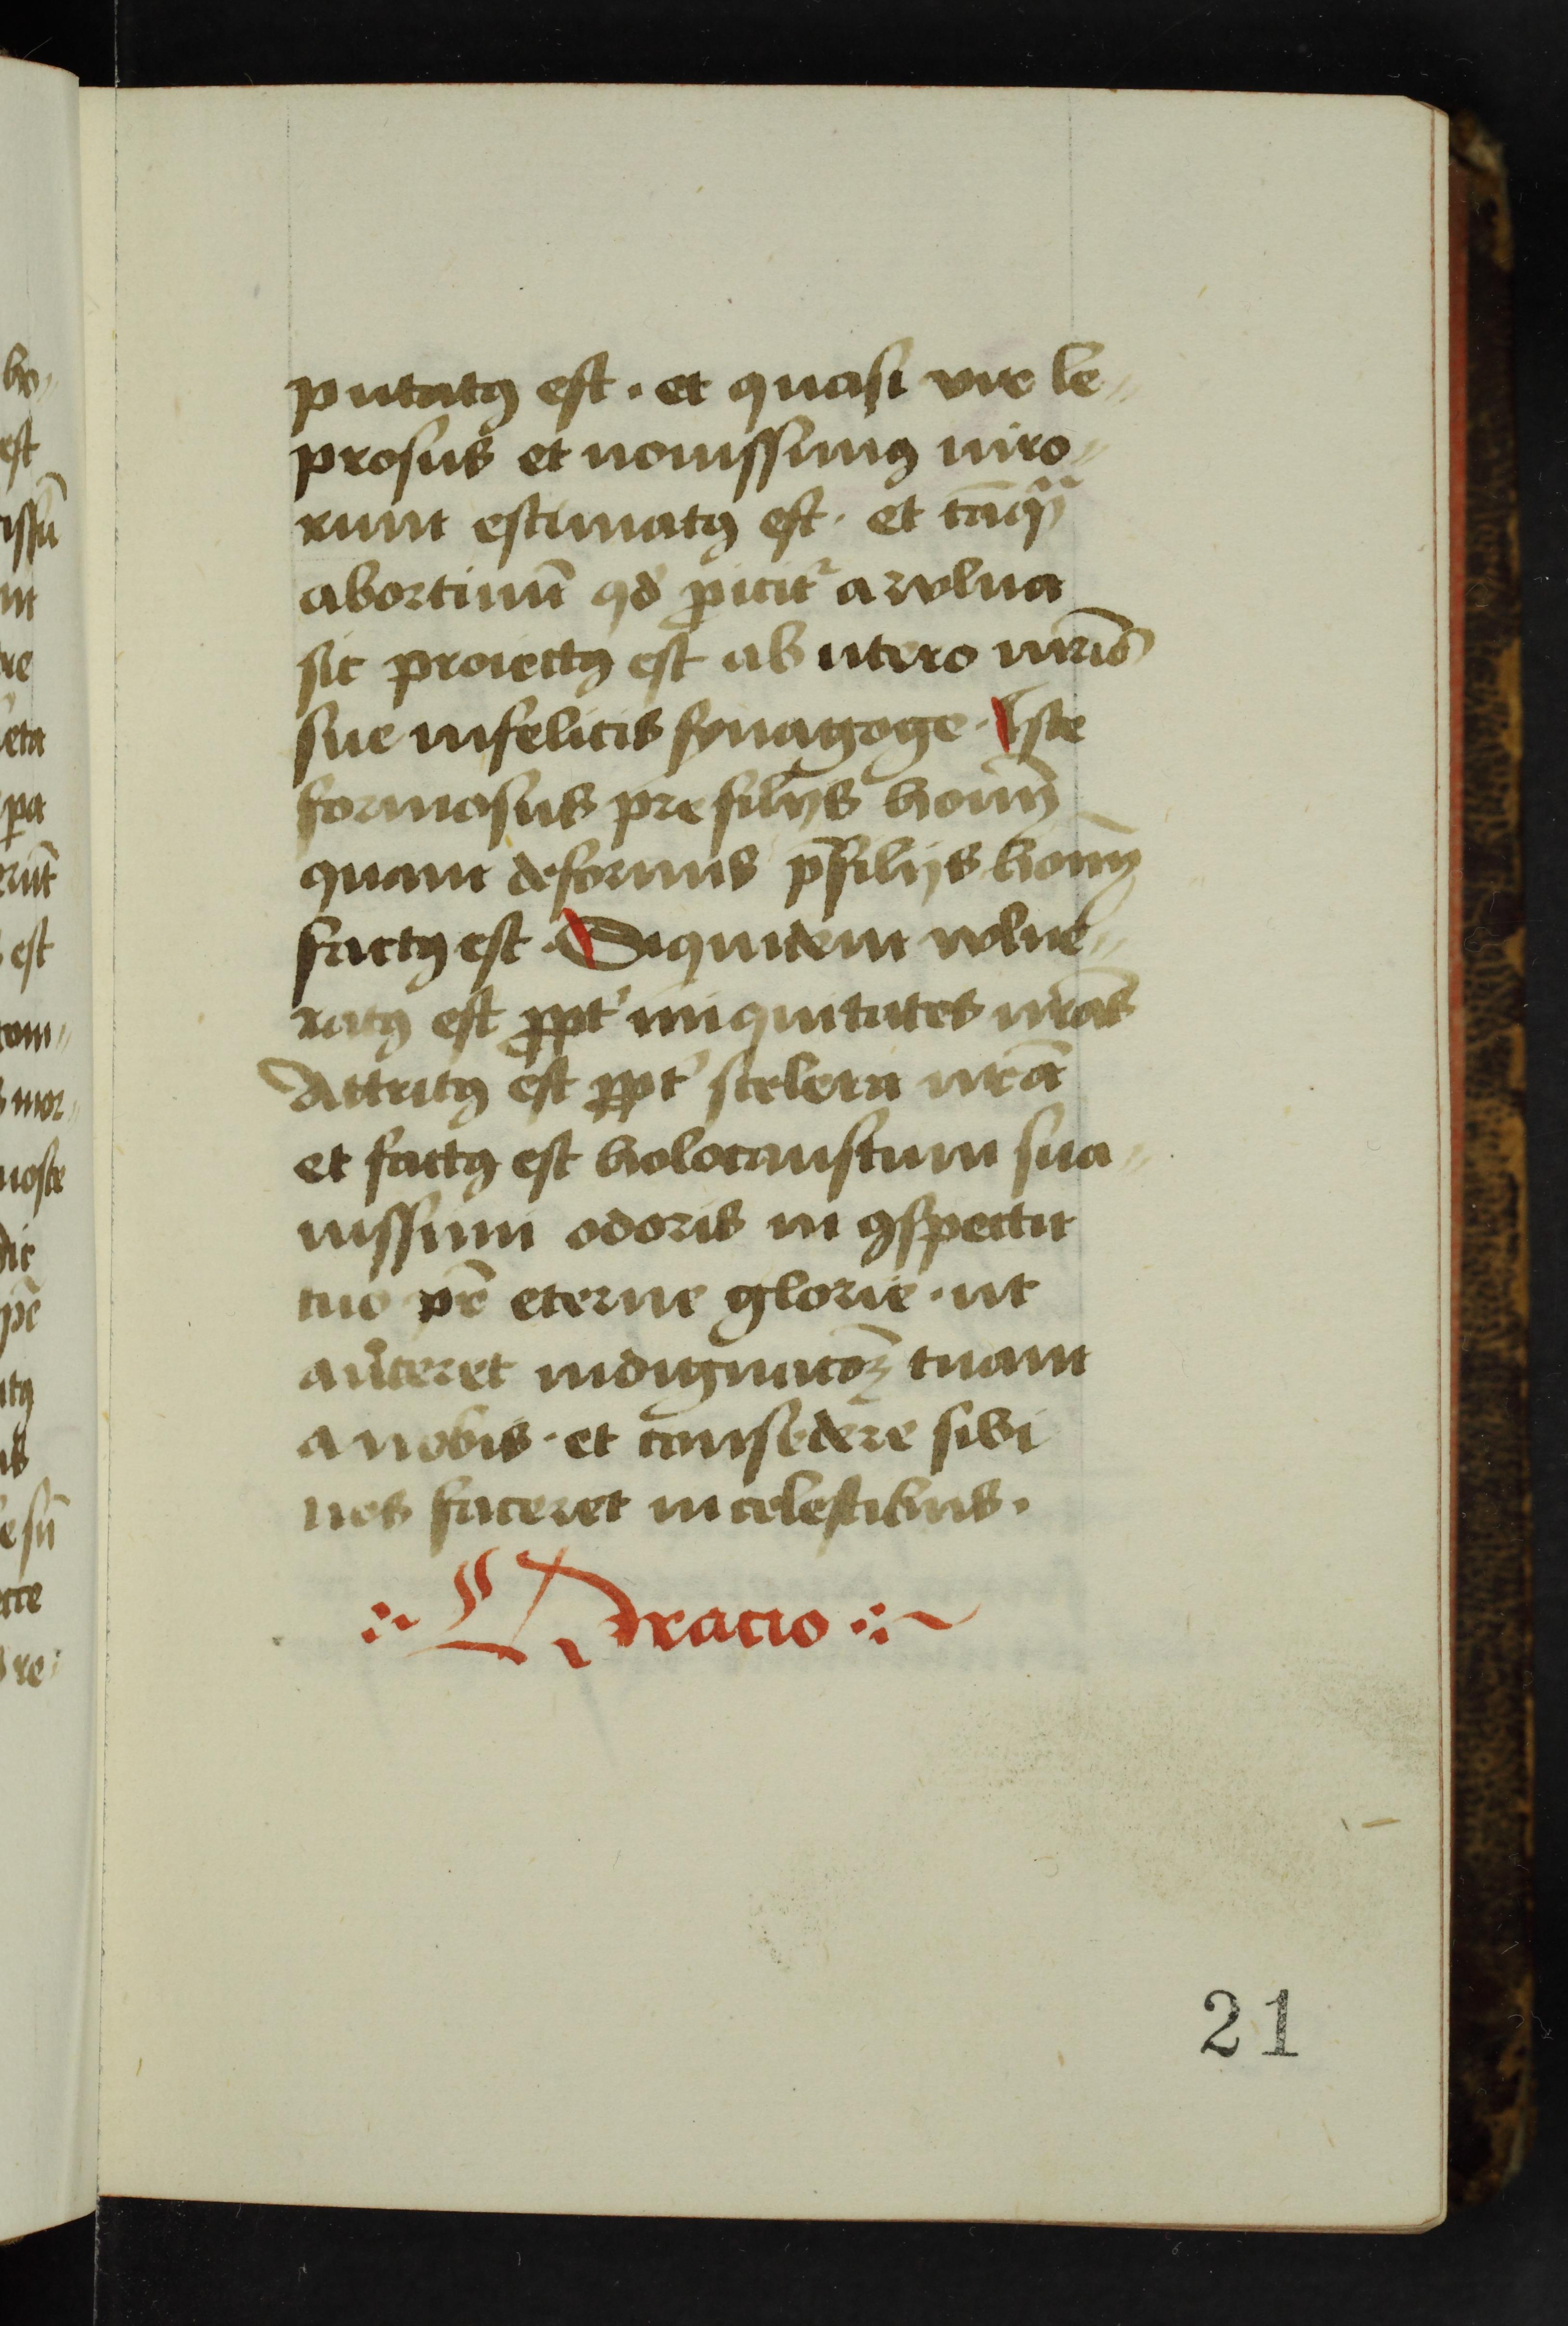 putatꝰ est · et quasi vir le〃
prosus et nouissimꝰ uiro〃
rum estimatꝰ est · et tāqᷓ
abortiuū qd̓ ꝓicitᷣ a vulua
sic proiectꝰ est ab utero mr̄is
sue infelicis synagoge · Iste
formosus pre filijs homī
quam deformis p̄ filijs homī
factꝰ est · Siquidem vulne〃
ratꝰ est ꝓpt̓ iniquitates nr̄as
Attritꝰ est ꝓpt̓ scelera nr̄a
et factꝰ est holocaustum sua〃
uissimi odoris in ꝯspectu
tuo pr̄ eterne glorie · ut
au̓teret indignacōꝫ tuam
a nobis · et consedere sibi
nos faceret in celestibus ·
Oracio
21